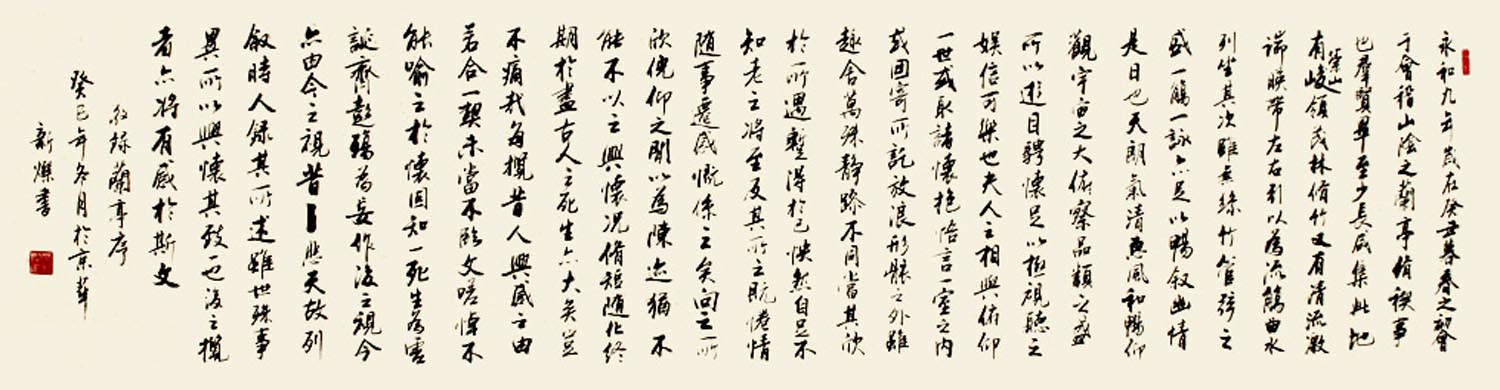 永和九年歲在癸丑暮春之初會
于會稽山陰之蘭亭脩禊事
也羣賢畢至少長咸集此地
有崇山峻領茂林脩竹又有清流激
湍暎帶左右引以為流觴曲水
列坐其次雖無絲竹管弦之
盛一觴一詠亦足以暢叙幽情
是日也天朗氣清惠風和暢仰
觀宇宙之大俯察品類之盛
所以遊目騁懷足以極視聽之
娛信可樂也夫人之相與俯仰
一世或取諸懷抱悟言一室之內
或因寄所託放浪形骸之外雖
趣舍萬殊靜躁不同當其欣
於所遇暫得於己怏然自足不
知老之將至及其所之既惓情
隨事遷感慨係之矣向之所
欣俛仰之閒以為陳迹猶不
能不以之興懷況脩短隨化終
期於盡古人云死生亦大矣豈
不痛哉每攬昔人興感之由
若合一契未嘗不臨文嗟悼不
能喻之於懷固知一死生為虛
誕齊彭殤為妄作後之視今
亦由今之視昔悲夫故列
叙時人錄其所述雖世殊事
異所以興懷其致一也後之攬
者亦將有感於斯文
錄蘭亭序
癸巳年冬月於京華
新燦書